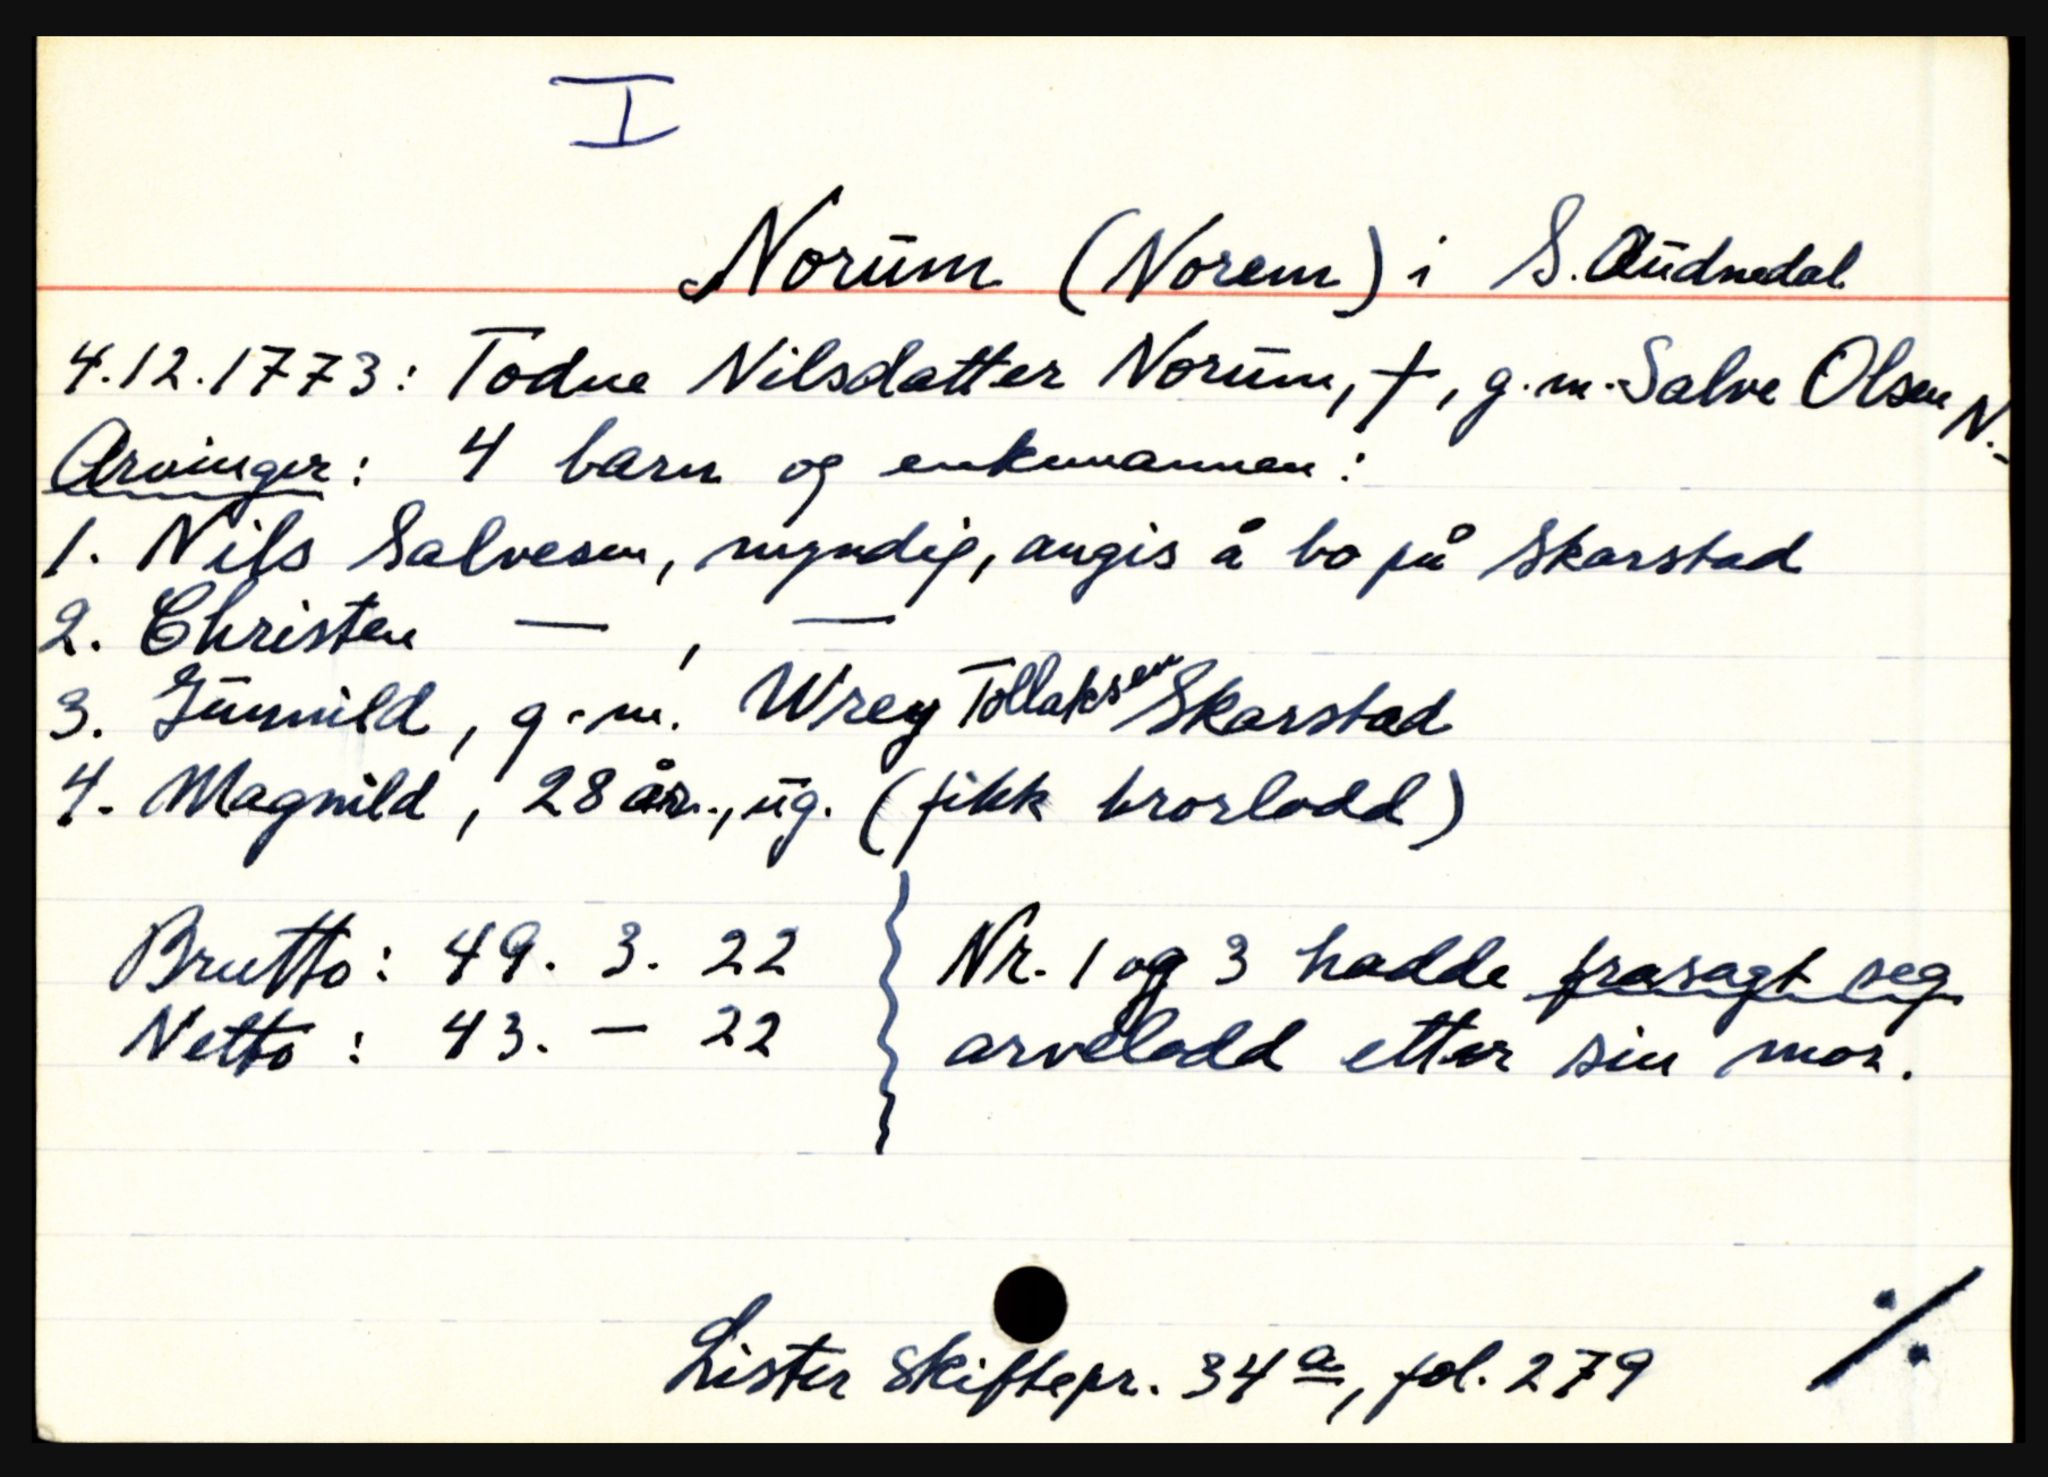 I
Norum (Norem) i S. Audnedal
4.12.1773: Todne Nilsdatter Norum, †, g.m. Salve Olsen N.-
Arvinger: 4 barn og enkemannen:
1. Nils Salvesen, myndig, angis å bo på Skarstad
2. Christen — , —
3. Gunnild, g.m. Wrey Tollaksen Skarstad
4. Magnild, 28 år., ug. (fikk brorlodd)
Brutto: 49. 3. 22
Netto: 43. — 22
Nr. 1 og 3 hadde frasagt seg
arvelodd etter sin mor.
Lister skiftepr. 34a, fol. 279
./.